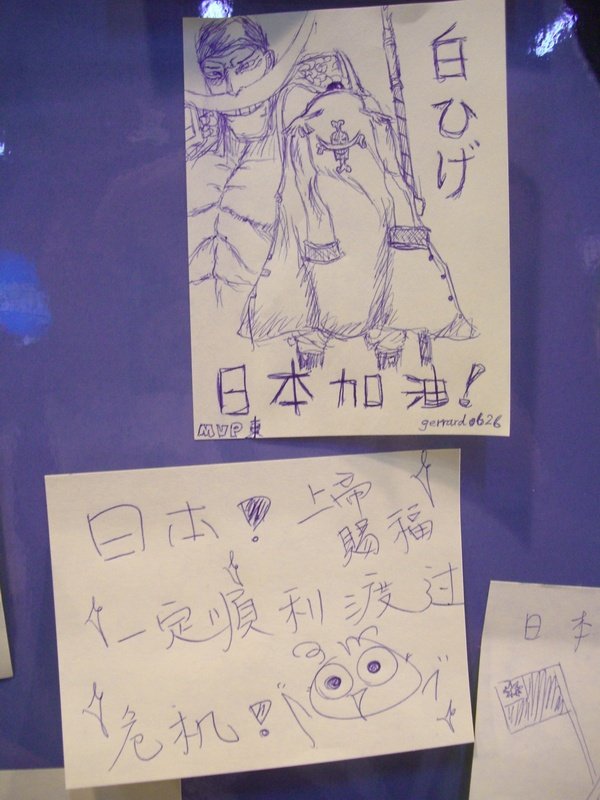 白ひげ
日本加油!
MVP 東
gerrard0626
日本! 上帝
賜福
一定順利渡过
危机!
日本